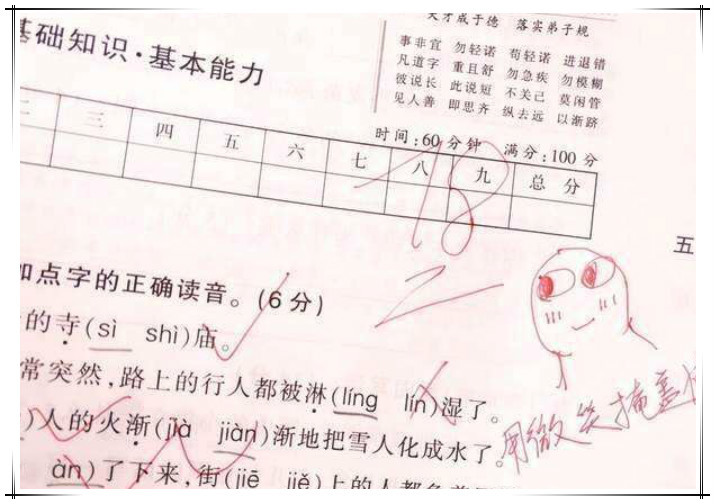 天才成于德 落实弟子规
事非宜 勿轻诺 苟轻诺 进退错
凡道字 重且舒 勿急疾 勿模糊
彼说长 此说短 不关己 莫闲管
见人善 即思齐 纵去远 以渐跻
基础知识·基本能力
时间:60分钟 满分:100分
二 三 四 五 六 七 八 九 总分
78
五
加点字的正确读音。(6分)
的寺(sì shì)庙。
常突然,路上的行人都被淋(líng lín)湿了。
)人的火渐(jià jiàn)渐地把雪人化成水了。
àn)了下来,街(jiē jiě)上的人都
用微笑掩盖